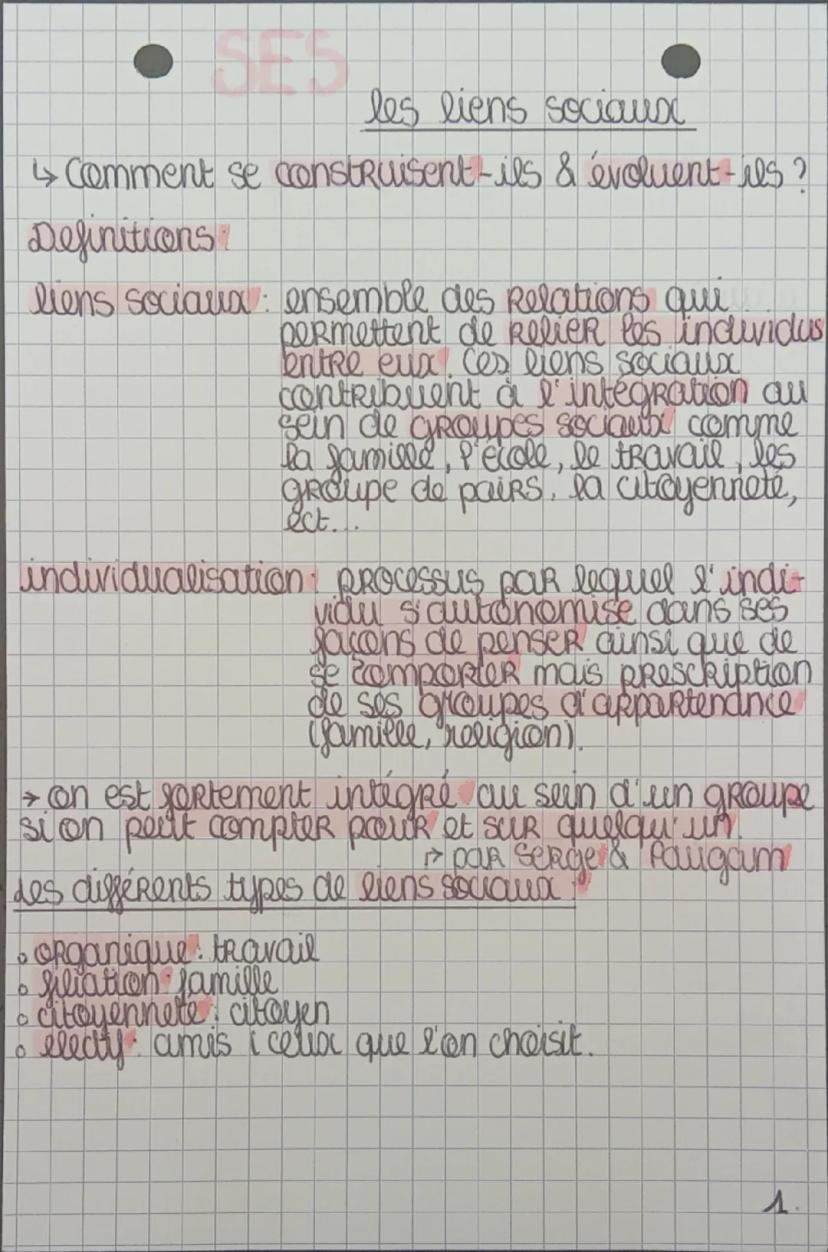 SES
les liens sociaux
↳ Comment se construisent-ils & évoluent-ils ?
Definitions:
liens sociaux : ensemble des Relations qui
permettent de relier les individus
entre eux. Ces liens sociaux
contribuent à l'intégration au
sein de groupes sociaux comme
la famille, l'école, le travail, les
groupe de pairs, la citoyenneté,
ect...
individualisation : processus par lequel l'indi-
vidu s'autonomise dans ses
façons de penser ainsi que de
se comporter mais prescription
de ses groupes d'appartenance
(famille, religion).
→ on est fortement intégré au sein d'un groupe
si on peut compter pour et sur quelqu'un.
↱ par Serge & Paugam
Les différents types de liens sociaux :
o organique : travail
o filiation : famille
o citoyenneté : citoyen
o électif : amis ( ceux que l'on choisit.
1.